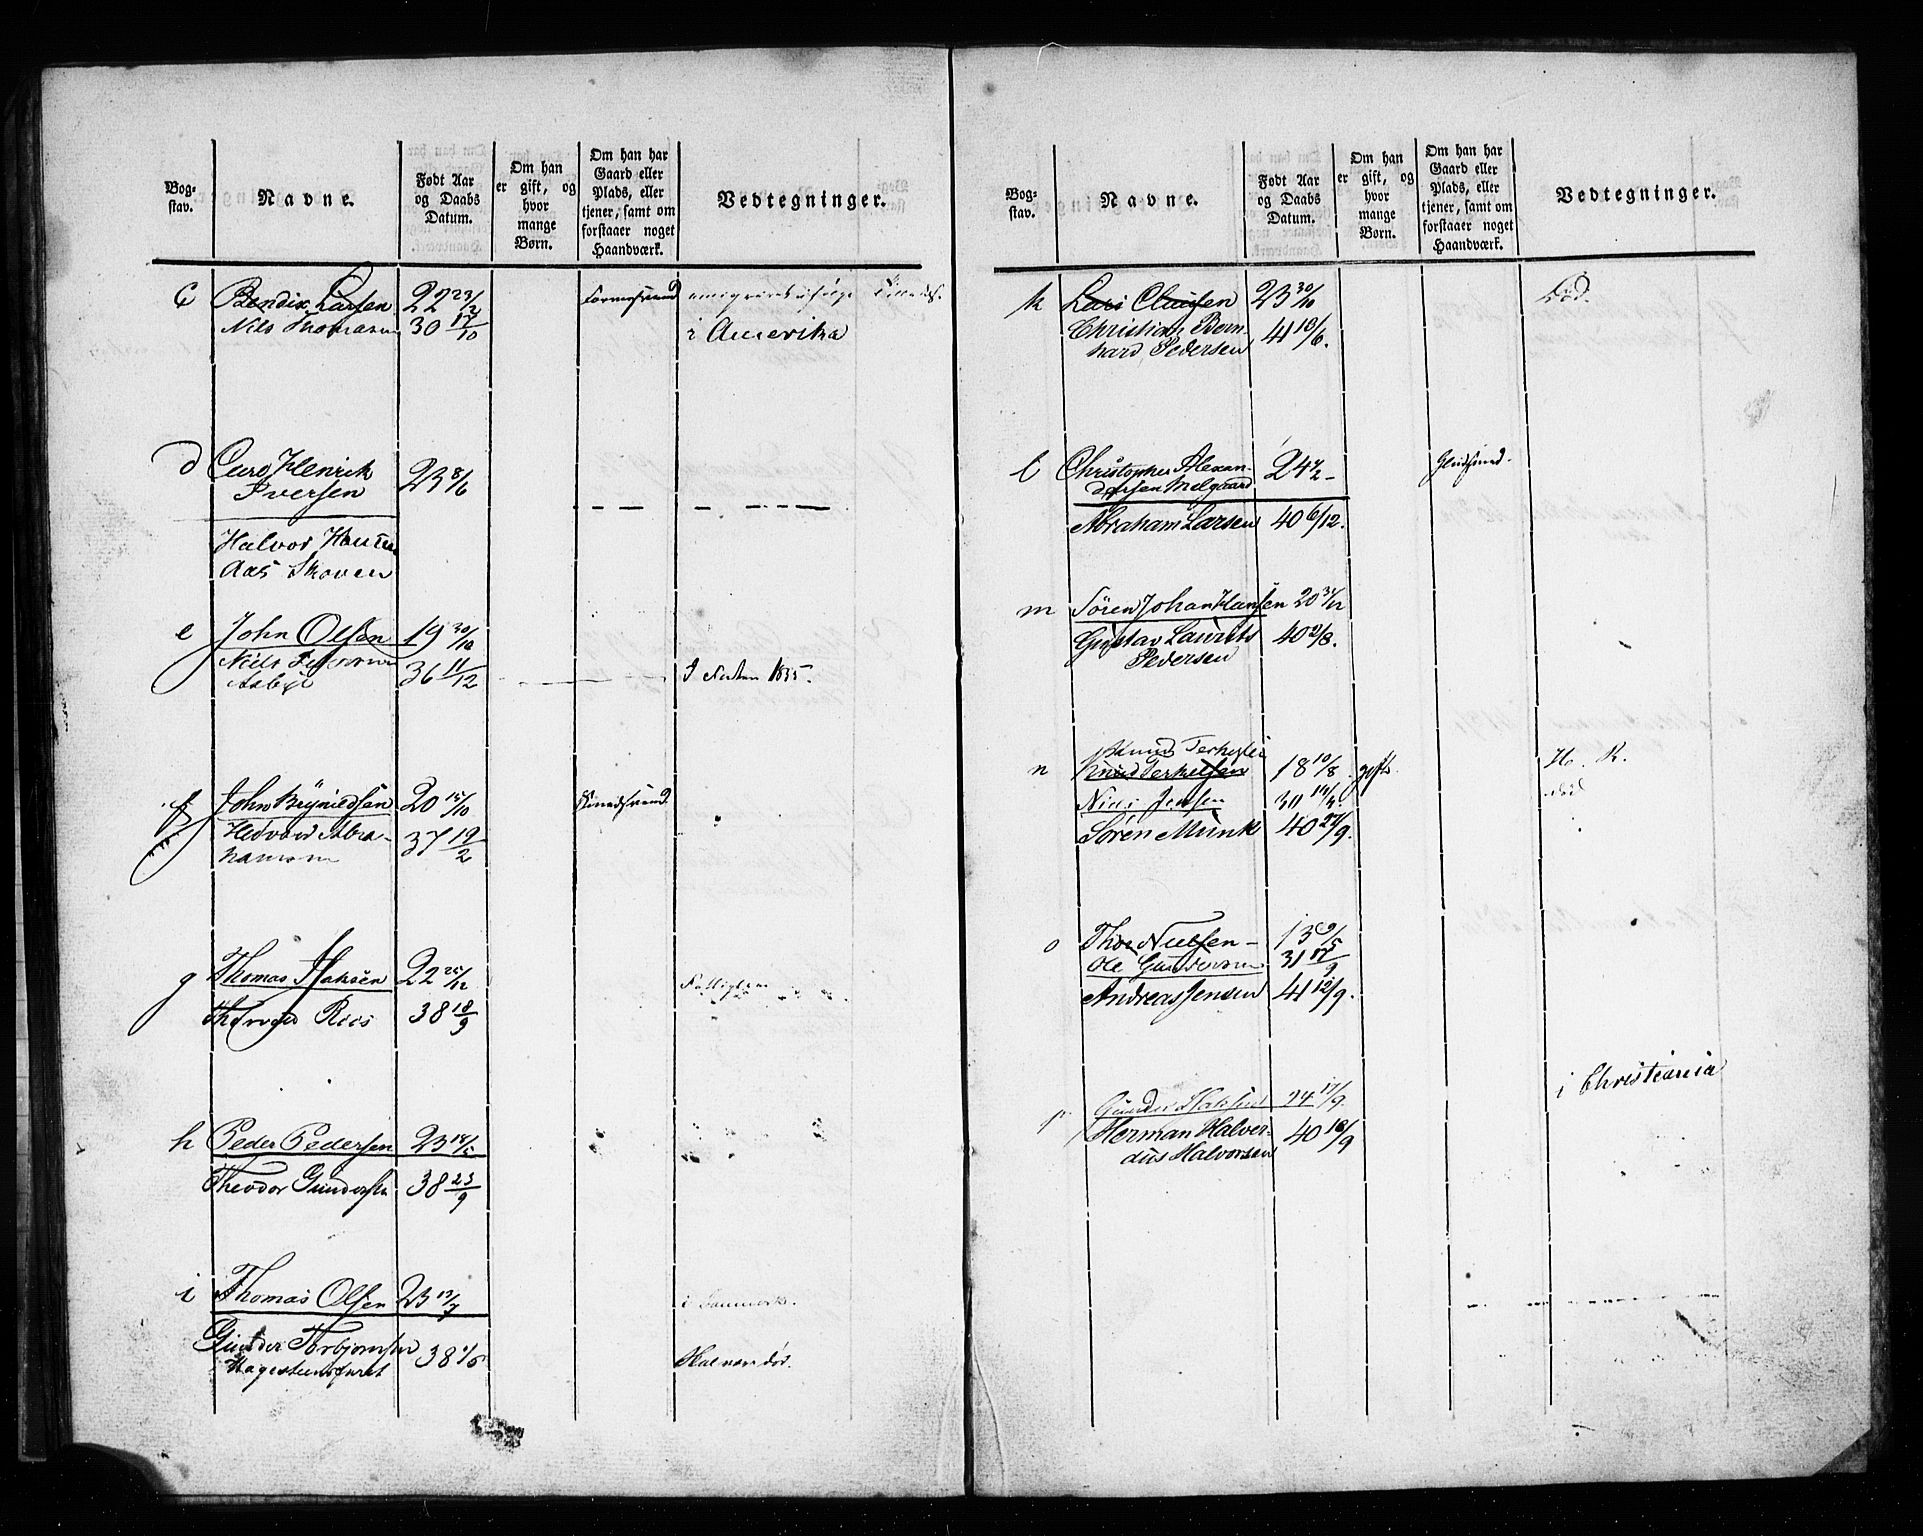 Bog-
stav.
Navne.
Født Aar
og Daabs
Datum.
Om han
er gift, og
hvor
mange
Børn.
Om han har
Gaard eller
Plads, eller
tjener, samt om
forstaaer noget
Haandværk.
Vedtegninger.
c Bendix Larsen 22 23/12
Nils Thomasen 30 17/10 i Amerika
d Carl Henrik 23 8/6
Iversen
Halvor Hansen
Aas Skoven
e John Olsen 19 30/10
Niels 36 11/12
Asbye 1835.
f John Brynildsen 20 15/10
Hedvard Abra- 37 19/2
hamsen
g Thomas Jsaksen 22 25/12
Thorvald Riis 38 18/9
h Peder Pedersen 23 18/5
Theodor Gundersen 38 23/9
i Thomas Olsen 23 13/7 i Danmark.
Gunder Torbjornsen 38 1/5
Bog-
stav.
Navne.
Født Aar
og Daabs
Datum.
Om han
er gift, og
hvor
mange
Børn.
Om han har
Gaard eller
Plads, eller
tjener, samt om
forstaaer noget
Haandværk.
Vedtegninger.
k Lars Clausen 23 30/10 Død.
Christian Bern- 41 18/6.
hard Pedersen
l Christopher Alexan- 24 4/2
dersen Melgaard
Abraham Larsen 40 6/12.
m Sören Johan Hansen 20 31/12
Gustav Laurits 40 2/8.
Pedersen
Knud Terkelsen
n Knud Terkelsen 18 10/8 gift. H. K.
Niels Jensen 30 14/3. død
Sören Munk 40 27/9.
o Thor Nielsen 13 9/5
Ole Gundersen 31 17/9
Andreas Jensen 41 12/9.
i Christiania
p Gunder 24 17/9.
Herman Halver- 40 18/9
dus Halvorsen